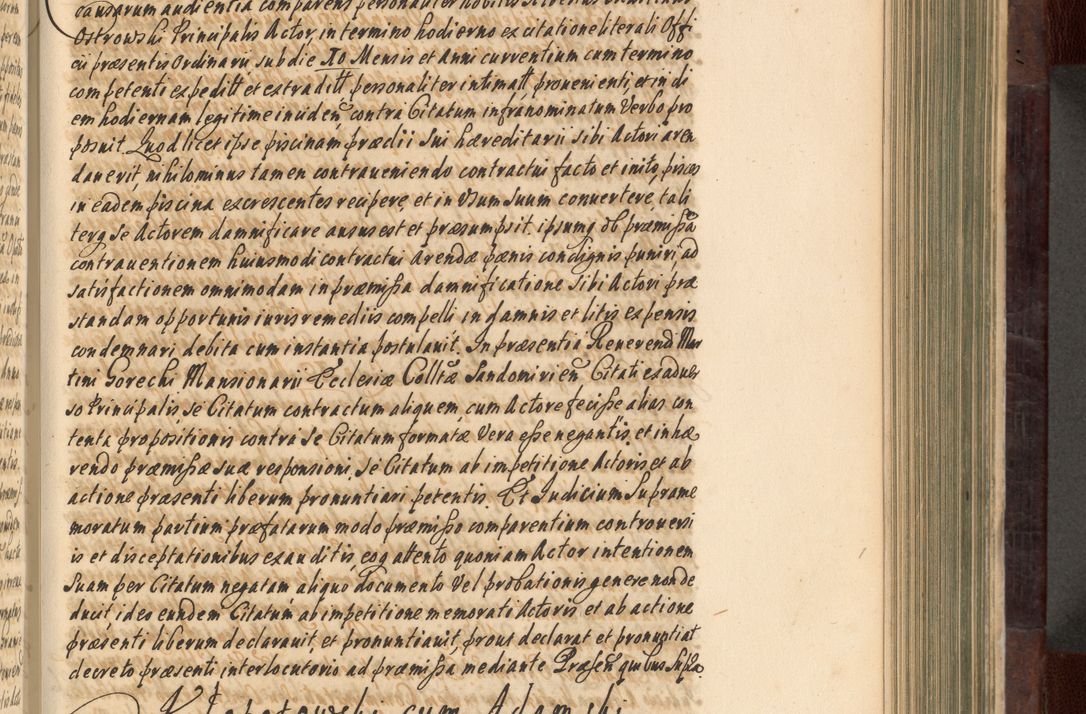 causarum audientia comparens personaliter nobilis
Ostrowski Principalis Actor, in termino hodierno ex citatione literali Offi
cii præsentis Ordinarii sub die Xo Mensis et Anni curventium cum termino
competenti expeditt et extraditt personaliter intimatt provenienti, et in di
em hodiernam legitime inciden contra Citatum infranominatum Verbo pro
posuit. Quod licet ipse piscinam prædii sui hæreditarii sibi Actori aren
daverit, nihilominus tamen contraveniendo contractui facto et inito, pisces
in eadem piscina excrescentes recipere, et in Usum suum convertere, tali
terq se Actorem damnificare ausus est et præsumpsit. ipsumq ob præmissa
contraventionem huiusmodi contractui Arendæ pænis condignis puniri, ad
satisfactionem omnimodam in præmissa damnificatione sibi Actori præ
standam opportunis iuris remediis compelli in damnis et litis expensis
condemnari debita cum instantia postulavit. In præsentia Reverendi Mar
tini Gorecki Mansionarii Ecclesiæ Colltæ Sandomirien Citati ex adver
so Principalis se Citatum contractum aliquem cum Actore fecisse alias con
tenta propositionis contra se Citatum formatæ Vera esse negantis, et inhæ
rendo præmissæ suæ responsioni, se Citatum ab impetitione Actoris et ab
actione præsenti liberum pronuntiari petentis. Et Judicium Suprame
moratum partium præfatarum modo præmisso comparentium controversi
is et disceptationibus exauditis, eoq attento quoniam Actor intentionem
Suam per Citatum negatam aliquo documento Vel probationis genere non de
ducit, ideo eundem Citatum ab impetitione memorati Actoris et ab actione
præsenti liberum declaravit, et pronuntiavit, prout declarat et pronuntiat
decreto præsenti interlocutorio ad præmissa mediante Præsen quibus Supra.
cum Adamski